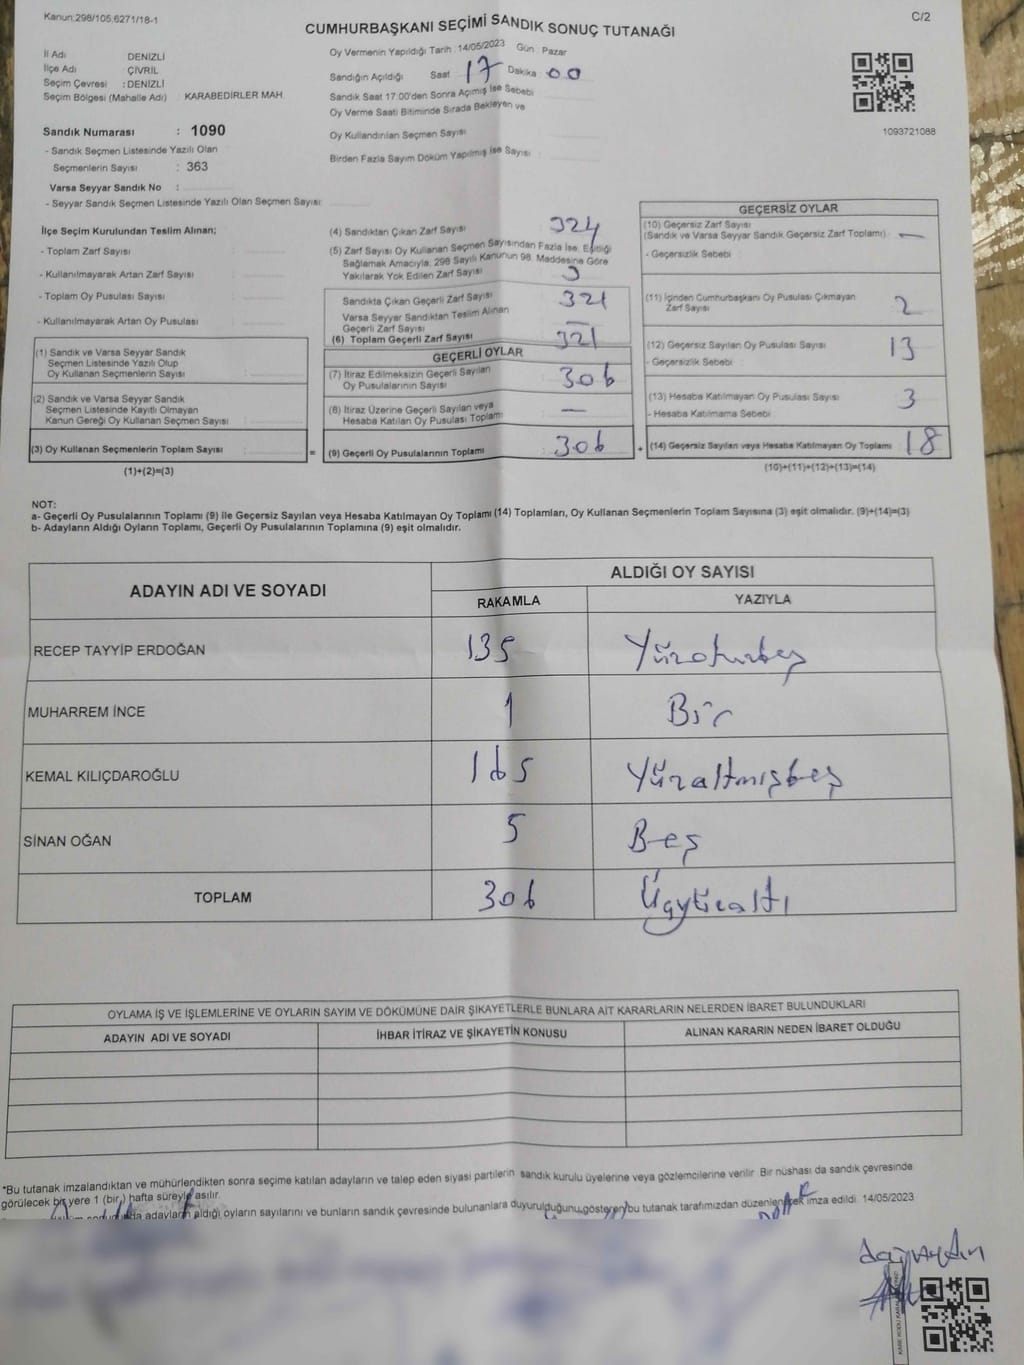 Kanun:298/105,6271/18-1
C/2
CUMHURBAŞKANI SEÇİMİ SANDIK SONUÇ TUTANAĞI
İl Adı DENİZLİ
İlçe Adı ÇİVRİL
Seçim Çevresi : DENİZLİ
Seçim Bölgesi (Mahalle Adı) KARABEDİRLER MAH.
Sandık Numarası : 1090
- Sandık Seçmen Listesinde Yazılı Olan
Seçmenlerin Sayısı : 363
Varsa Seyyar Sandık No :
- Seyyar Sandık Seçmen Listesinde Yazılı Olan Seçmen Sayısı:
Oy Vermenin Yapıldığı Tarih : 14/05/2023 Gün : Pazar
Sandığın Açıldığı Saat 17 Dakika : 00
Sandık Saat 17:00'den Sonra Açımış İse Sebebi
Oy Verme Saati Bitiminde Sırada Bekleyen ve
Oy Kullandırılan Seçmen Sayısı
Birden Fazla Sayım Döküm Yapılmış İse Sayısı :
1093721088
İlçe Seçim Kurulundan Teslim Alınan;
- Toplam Zarf Sayısı
- Kullanılmayarak Artan Zarf Sayısı :
- Toplam Oy Pusulası Sayısı :
- Kullanılmayarak Artan Oy Pusulası :
(1) Sandık ve Varsa Seyyar Sandık
Seçmen Listesinde Yazılı Olup
Oy Kullanan Seçmenlerin Sayısı :
(2) Sandık ve Varsa Seyyar Sandık
Seçmen Listesinde Kayıtlı Olmayan
Kanun Gereği Oy Kullanan Seçmen Sayısı :
(3) Oy Kullanan Seçmenlerin Toplam Sayısı :
(1)+(2)=(3)
(4) Sandıktan Çıkan Zarf Sayısı 324
(5) Zarf Sayısı Oy Kullanan Seçmen Sayısından Fazla İse, Eşitliği
Sağlamak Amacıyla; 298 Sayılı Kanunun 98. Maddesine Göre
Yakılarak Yok Edilen Zarf Sayısı 3
Sandıkta Çıkan Geçerli Zarf Sayısı 321
Varsa Seyyar Sandıktan Teslim Alınan
Geçerli Zarf Sayısı —
(6) Toplam Geçerli Zarf Sayısı 321
GEÇERLİ OYLAR
(7) İtiraz Edilmeksizin Geçerli Sayılan
Oy Pusulalarının Sayısı 306
(8) İtiraz Üzerine Geçerli Sayılan veya
Hesaba Katılan Oy Pusulası Toplamı —
= (9) Geçerli Oy Pusulalarının Toplamı 306
GEÇERSİZ OYLAR
(10) Geçersiz Zarf Sayısı
(Sandık ve Varsa Seyyar Sandık Geçersiz Zarf Toplamı) : —
- Geçersizlik Sebebi
(11) İçinden Cumhurbaşkanı Oy Pusulası Çıkmayan
Zarf Sayısı 2
(12) Geçersiz Sayılan Oy Pusulası Sayısı : 13
- Geçersizlik Sebebi :
(13) Hesaba Katılmayan Oy Pusulası Sayısı : 3
- Hesaba Katılmama Sebebi :
+ (14) Geçersiz Sayılan veya Hesaba Katılmayan Oy Toplamı : 18
(10)+(11)+(12)+(13)=(14)
NOT:
a- Geçerli Oy Pusulalarının Toplamı (9) ile Geçersiz Sayılan veya Hesaba Katılmayan Oy Toplamı (14) Toplamları, Oy Kullanan Seçmenlerin Toplam Sayısına (3) eşit olmalıdır. (9)+(14)=(3)
b- Adayların Aldığı Oyların Toplamı, Geçerli Oy Pusulalarının Toplamına (9) eşit olmalıdır.
ADAYIN ADI VE SOYADI ALDIĞI OY SAYISI
RAKAMLA YAZIYLA
RECEP TAYYİP ERDOĞAN 135 Yüzoturbeş
MUHARREM İNCE 1 Bir
KEMAL KILIÇDAROĞLU 165 Yüzaltmışbeş
SİNAN OĞAN 5 Beş
TOPLAM 306 Üçyüzaltı
OYLAMA İŞ VE İŞLEMLERİNE VE OYLARIN SAYIM VE DÖKÜMÜNE DAİR ŞİKAYETLERLE BUNLARA AİT KARARLARIN NELERDEN İBARET BULUNDUKLARI
ADAYIN ADI VE SOYADI İHBAR İTİRAZ VE ŞİKAYETİN KONUSU ALINAN KARARIN NEDEN İBARET OLDUĞU
*Bu tutanak imzalandıktan ve mühürlendikten sonra seçime katılan adayların ve talep eden siyasi partilerin sandık kurulu üyelerine veya gözlemcilerine verilir. Bir nüshası da sandık çevresinde
görülecek bir yere 1 (bir) hafta süreyle asılır.
adayların aldığı oyların sayılarını ve bunların sandık çevresinde bulunanlara duyurulduğunu gösteren bu tutanak tarafımızdan düzenlenerek imza edildi. 14/05/2023